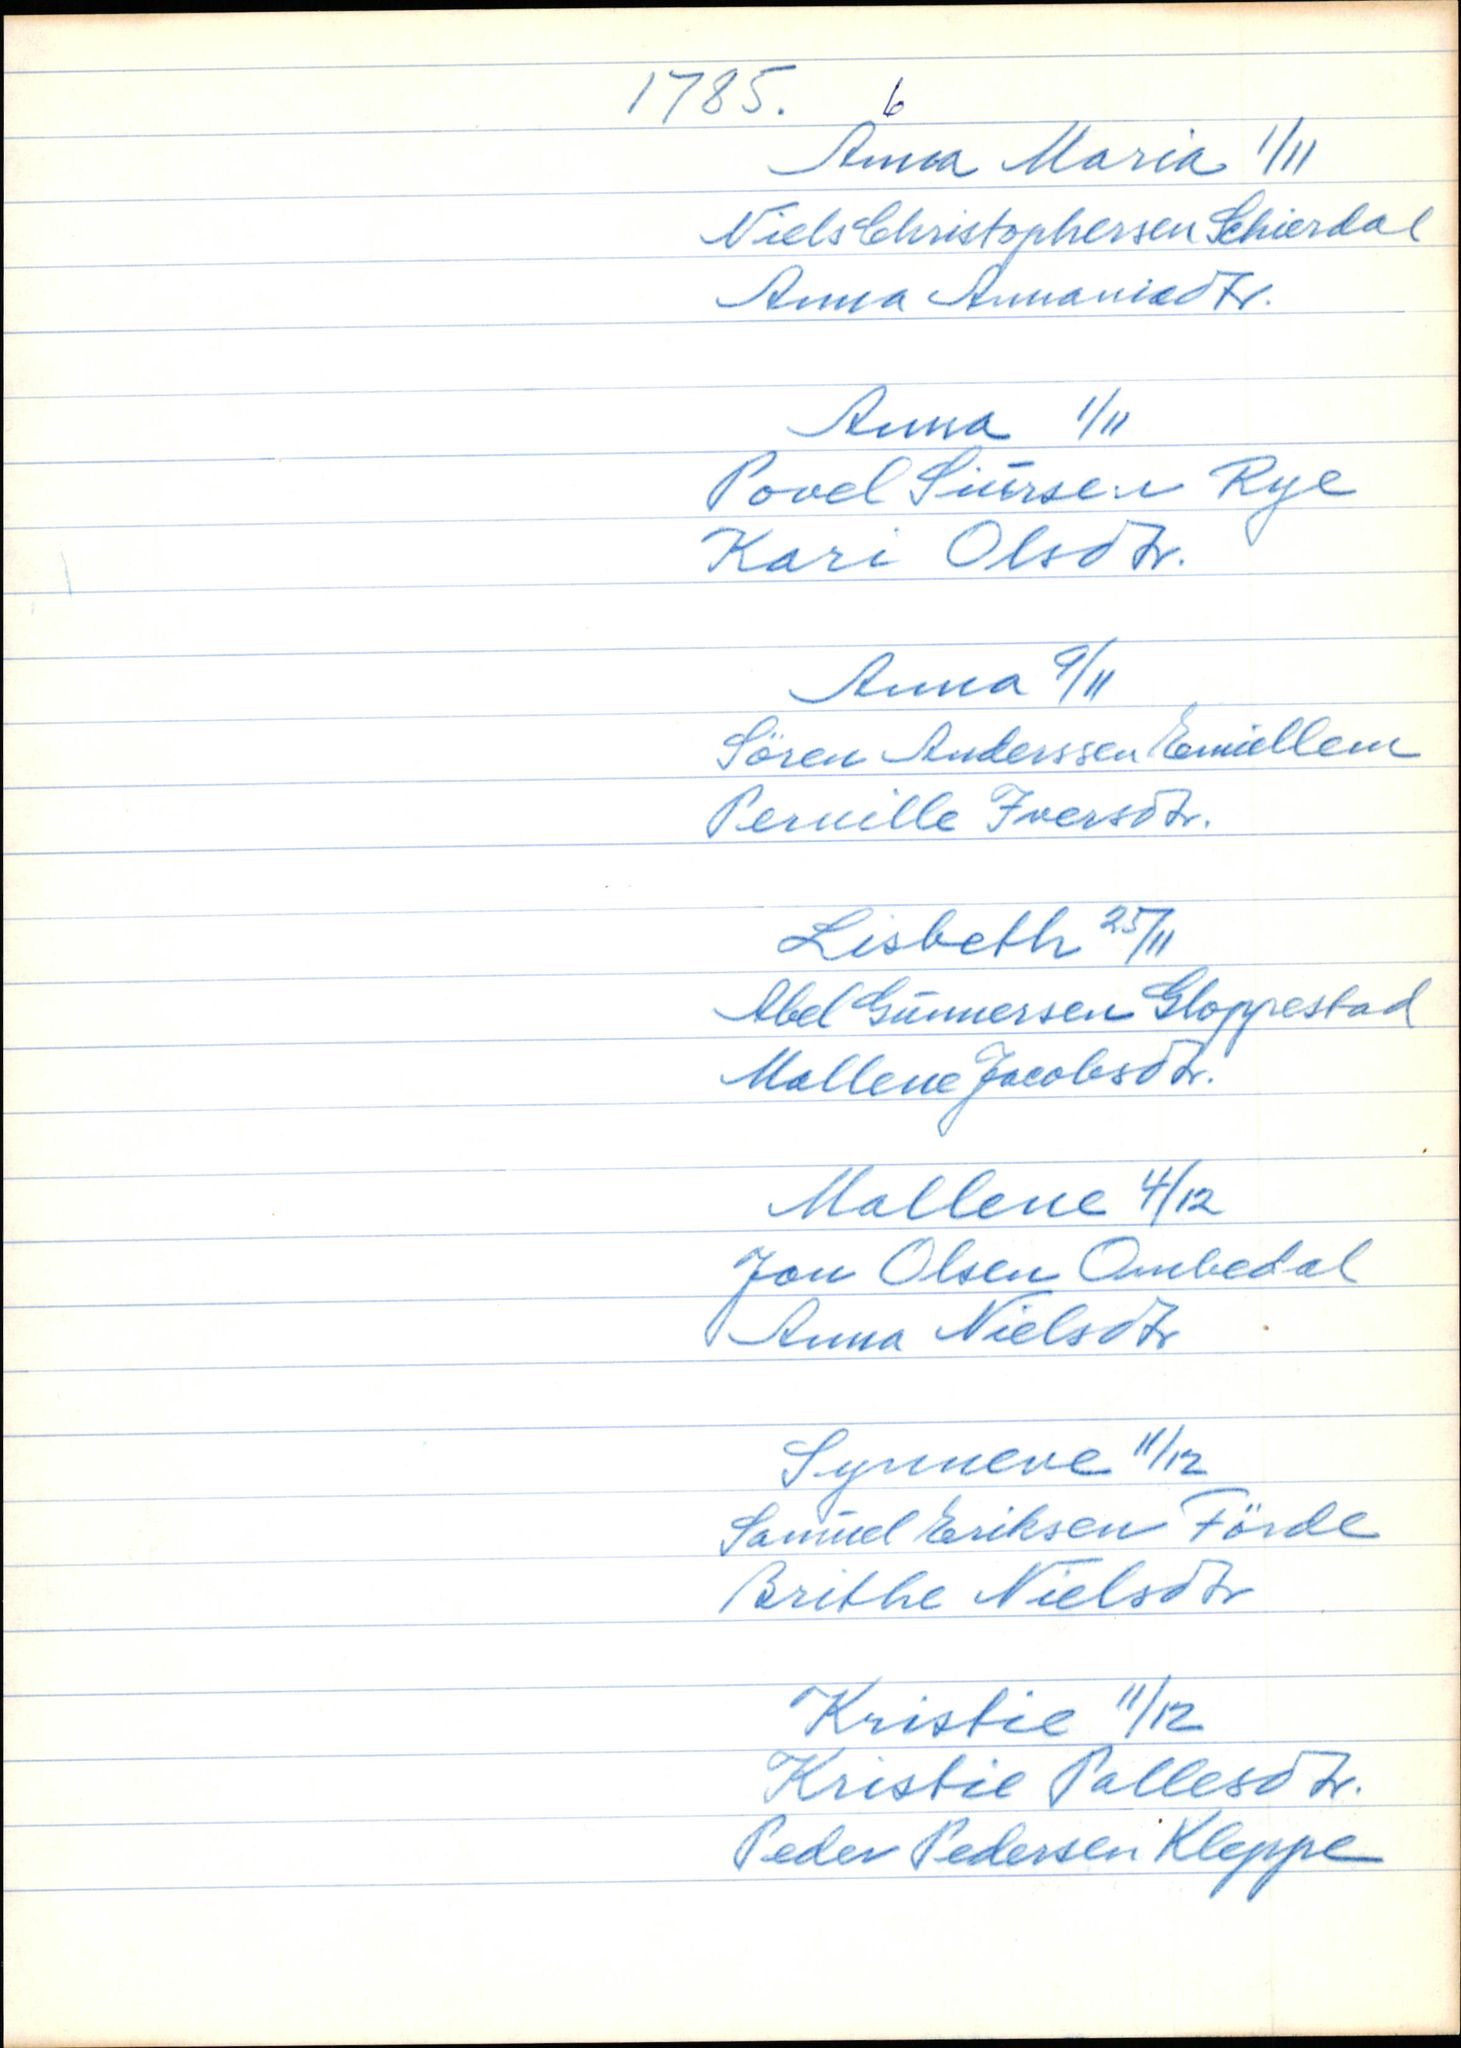 1785. 6
Anna Maria 1/11
Niels Christophersen Schierdal
Anna Annaniadtr.
Anna 1/11
Povel Siürsen Rye
Kari Olsdtr.
Anna 9/11
Sören Anderssen Emiellem
Pernille Iversdtr.
Lisbeth 25/11
Abel Günnersen Gloppestad
Mallene Jacobsdtr.
Mallene 4/12
Jon Olsen Ombedal
Anna Nielsdtr
Synneve 11/12
Samüel Eriksen Förde
Brithe Nielsdtr
Kristie 11/12
Kristie Pallesdtr.
Peder Pedersen Kleppe